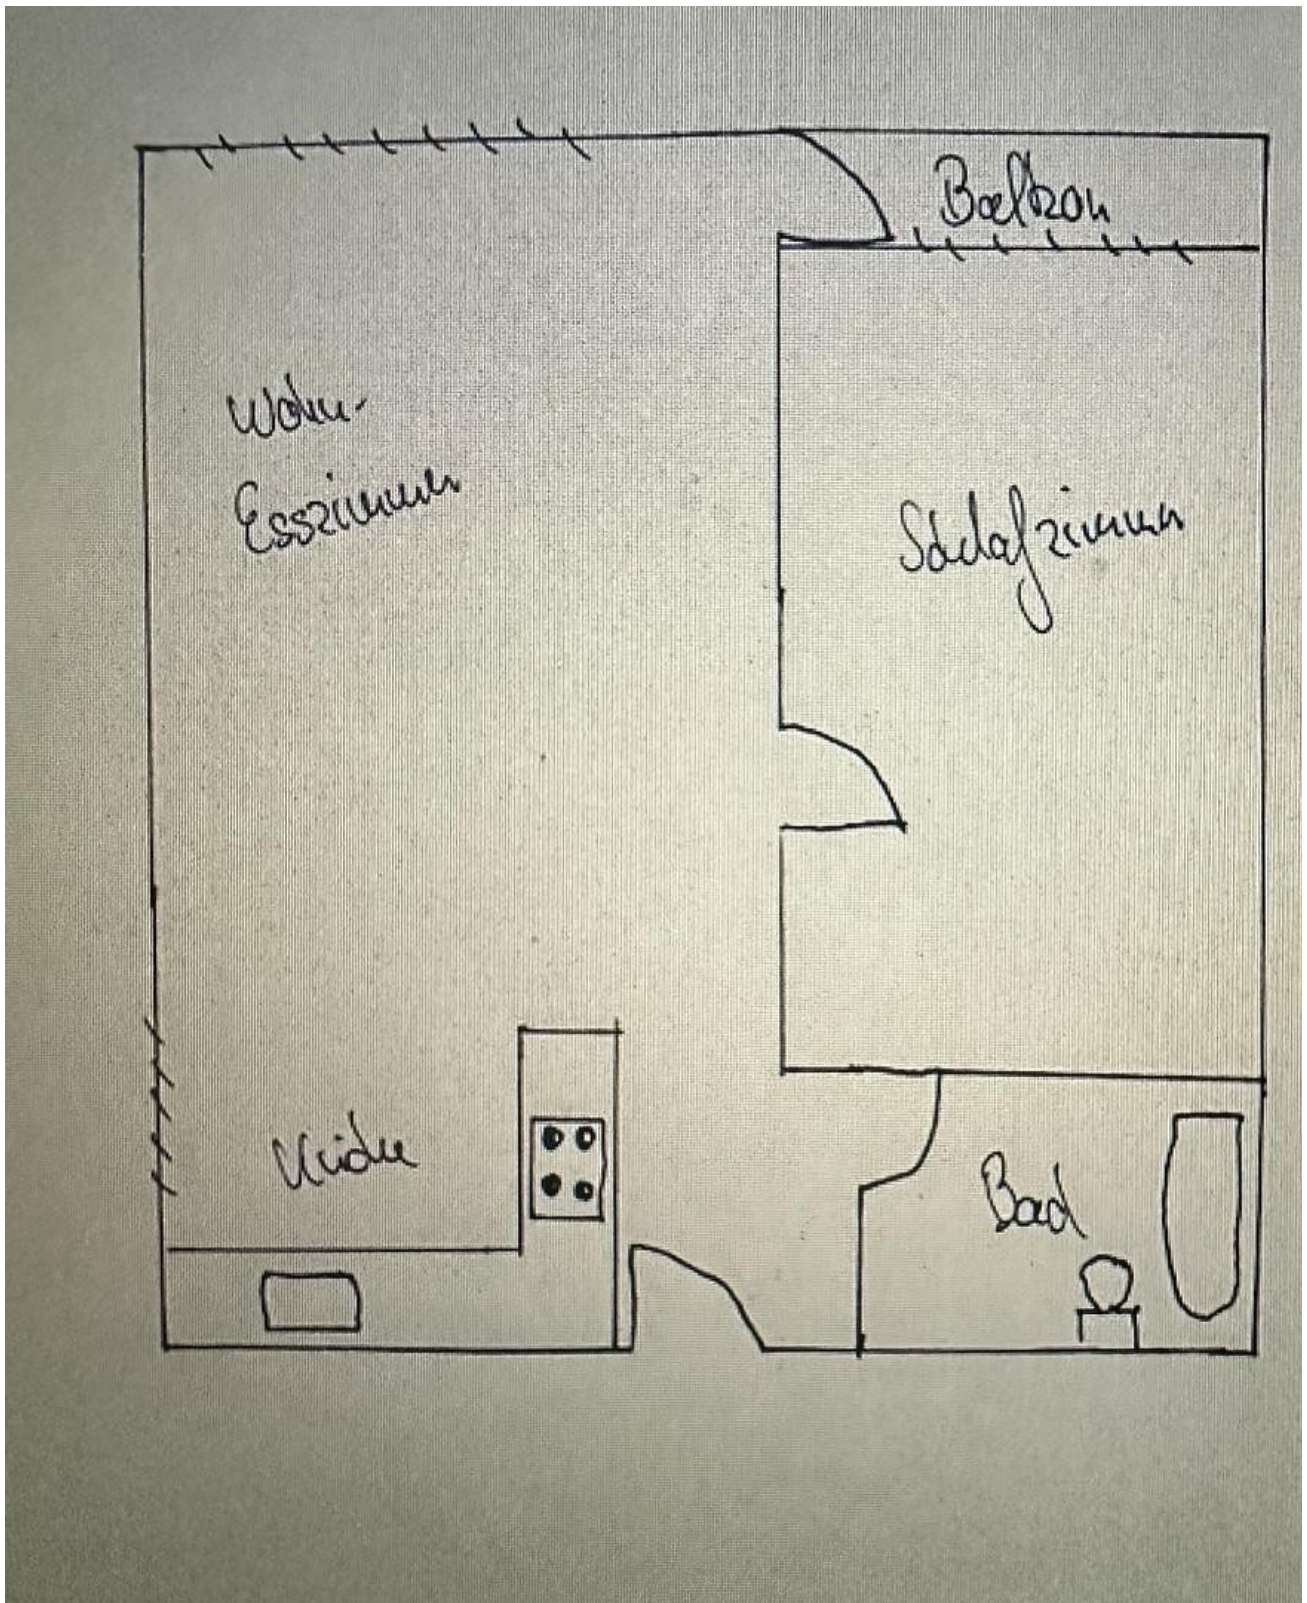 Balkon
Wohn-
Esszimmer
Schlafzimmer
Küche
Bad